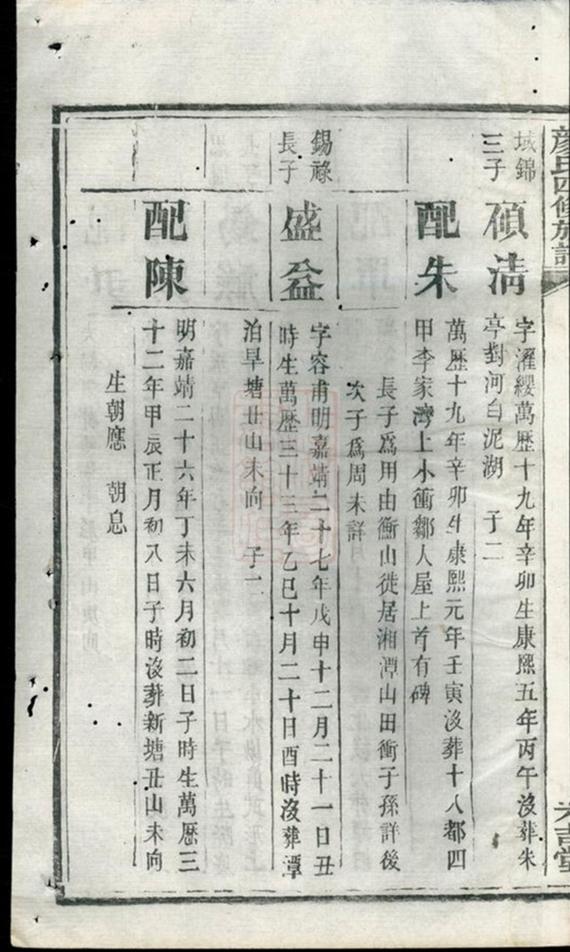 顏氏四修族譜
域錦
三子
碩清
字濯纓萬歷十九年辛卯生康熙五年丙午沒葬朱
亭對河白泥湖 子二
配朱
萬歷十九年辛卯生康熙元年壬寅沒葬十八都四
甲李家灣上小衝鄒人屋上首有碑
長子為用由衡山徙居湘潭山田衝子孫詳後
次子為周未詳
錫祿
長子
盛益
字容甫明嘉靖二十七年戊申十二月二十一日丑
時生萬歷三十三年乙巳十月二十日酉時沒葬潭
泊旱塘丑山未向 子二
配陳
明嘉靖二十六年丁未六月初二日子時生萬歷三
十二年甲辰正月初八日子時沒葬新塘丑山未向
生朝應 朝息